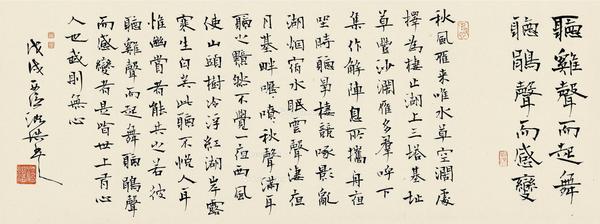 聽雞聲而起舞
聽鵑聲而感變
秋風雁來唯水草空闊處
擇為棲止湖上三塔基址
草豐沙闊雁多群呼下
集作解陣息所攜舟夜
坐時聽爭棲競啄影亂
湖烟宿水眠雲聲淒夜
月基畔嚦嘹秋聲滿耳
聽之黯然不覺一夜西風
使山頭樹冷浮紅湖岸露
寒生白矣此聽不悅人耳
惟幽賞者能共之若彼
聽雞聲而起舞聽鵑聲
而感變者是皆世上有心
人也我則無心
戊戌